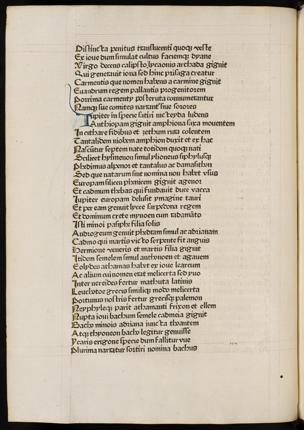 Distincta penitus translucenti quoque veste
Ex ioue dum simulat cultus faciemque dyane
Virgo decens calipsto lycaonis archada gignit
Qui genetauit iona sed hinc prisaga creatur
Carmentis que nomen habens a carmine gignit
Euandrum regem pallantis progenitorem
Postrima carmenty posteruta connumerantur
Nanque sue comites narrantur esse sorores
Iupiter in specie satiri nicteyda ludens
Anthiopam gignit amphiona saxa mouentem
In cythare fidibus et zethum ruta colentem
Tantalidem nioben amphion duxit et ex hac
Nascuntur septem nate totidem quoque nati
Scilicet hysmenon simul
Phedimus alpenor et tantalus ac damasicthon
Sed que natarum sint nomina non habet usus
Europam filiam phenicem gignit agenor
Et cadmum thebas qui fundauit dure vacca
Iupiter europam delusit ymagine tauri
Et per eam genuit lycie sarpedona regem
Et dominum crete mynoen cum radamanto
Isti minoi pasiphe filia solis
Androgeum genuit phedram simul ac adrianam
Cadmo qui martis victo serpente fit anguis
Hermione veneris et martis filia gignit
Itidem semelem simul authonoen et agauem
Eolydes athamas habet ex ioue learcum
Ac alium cui nomen erat melicerta sed yno
Inter nereides fertur mathuta latinis
Leuchotoe grecis similique modo melicerta
Portunus nostris fertur grecisque palemon
Nephyleque parit athamanti frixon et ellem
Nupta ioui bachum semele cadmeia gignit
Bachy minois adriana iuncta thoantem
Atque thyoneon bachy legitur genuisse
Ycaris erigone specie dum fallitur vue
Plurima narrantur sortiri nomina bachus